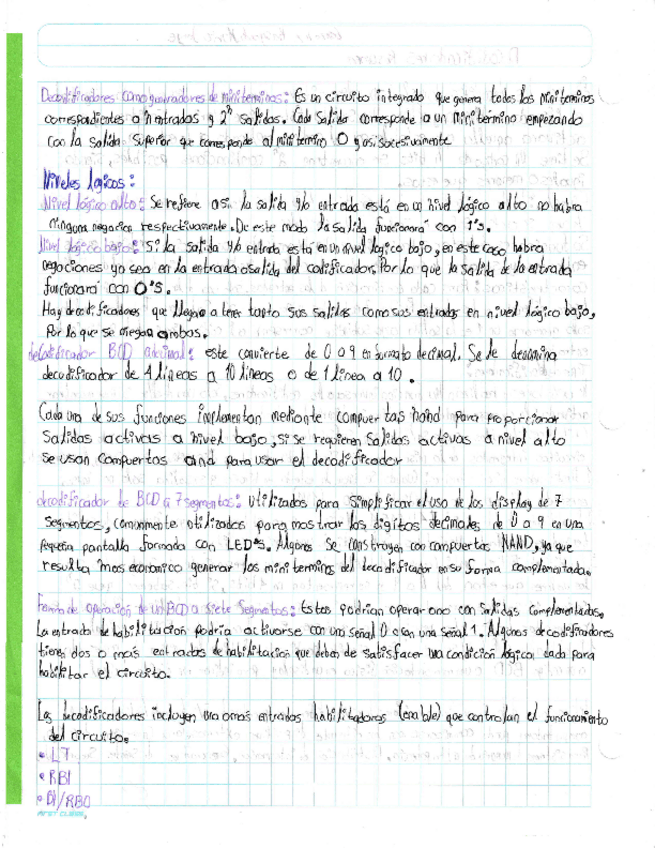 Decodificadores como generadores de minitérminos: Es un circuito integrado que genera todos los minitérminos
correspondientes a n entradas y 2ⁿ salidas. Cada salida corresponde a un minitermino empezando
con la salida superior que corresponde al minitermino 0 y asi sucesivamente
Niveles logicos:
Nivel lógico alto: Se refiere a si la salida y/o entrada está en un nivel lógico alto no habra
ninguna negacion respectivamente. De este modo la salida funcionará con 1's.
Nivel lógico bajo: Si la salida y/o entrada está en un nivel logico bajo, en este caso habra
negaciones ya sea en la entrada o salida del codificador. Por lo que la salida de la entrada
funcionará con 0's.
Hay decodificadores que llegan a tener tanto sus salidas como sus entradas en nivel lógico bajo,
Por lo que se niegan ambas.
decodificador BCD a decimal: este convierte de 0 a 9 en formato decimal. Se le denomina
decodificador de 4 lineas a 10 lineas o de 1 linea a 10.
Cada una de sus funciones implementan mediante compuertas nand para proporcionar
Salidas activas a nivel bajo, si se requieren salidas activas a nivel alto
se usan compuertas and para usar el decodificador
decodificador de BCD a 7 segmentos: Utilizados para simplificar el uso de los display de 7
Segmentos, comunmente utilizados para mostrar los digitos decimales de 0 a 9 en una
pequeña pantalla formada con LED's. Algunos se construyen con compuertas NAND, ya que
resulta mas economico generar los minitermins del decodificador en su forma complementada.
Forma de operación de un BCD a siete segmentos: Estos podrian operar o no con salidas complementadas.
La entrada de habilitacion podría activarse con una señal 0 o con una señal 1. Algunos decodificadores
tienen dos o más entradas de habilitacion que deben de satisfacer una condición lógica dada para
habilitar el circuito.
Los decodificadores incluyen una o mas entradas habilitadoras (enable) que controlan el funcionamiento
del circuito.
• LT
• RBI
• BI/RBO